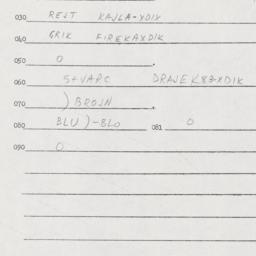 030 REJT KAJLA-XDIX
040 GRIK FIREKAXDIK
050 0
060 S+VARC DRAJEK83XDIK
070 )BROJN
080 BLU)-BLO 081 0
090 0